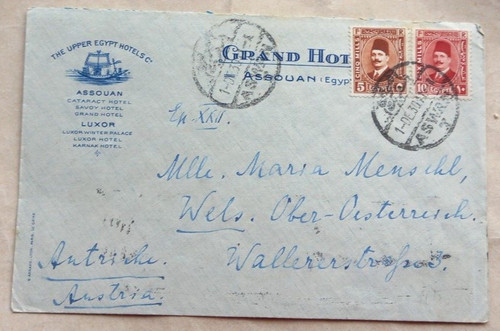 THE UPPER EGYPT HOTELS Co
ASSOUAN
CATARACT HOTEL
SAVOY HOTEL
GRAND HOTEL
LUXOR
LUXOR WINTER PALACE
LUXOR HOTEL
KARNAK HOTEL
GRAND HOT
ASSOUAN (Egypt
5
10
ASWAN
ASWAN
Mlle. Maria Menschl,
Wels. Ober-Oesterreich.
Autriche.
Austria.